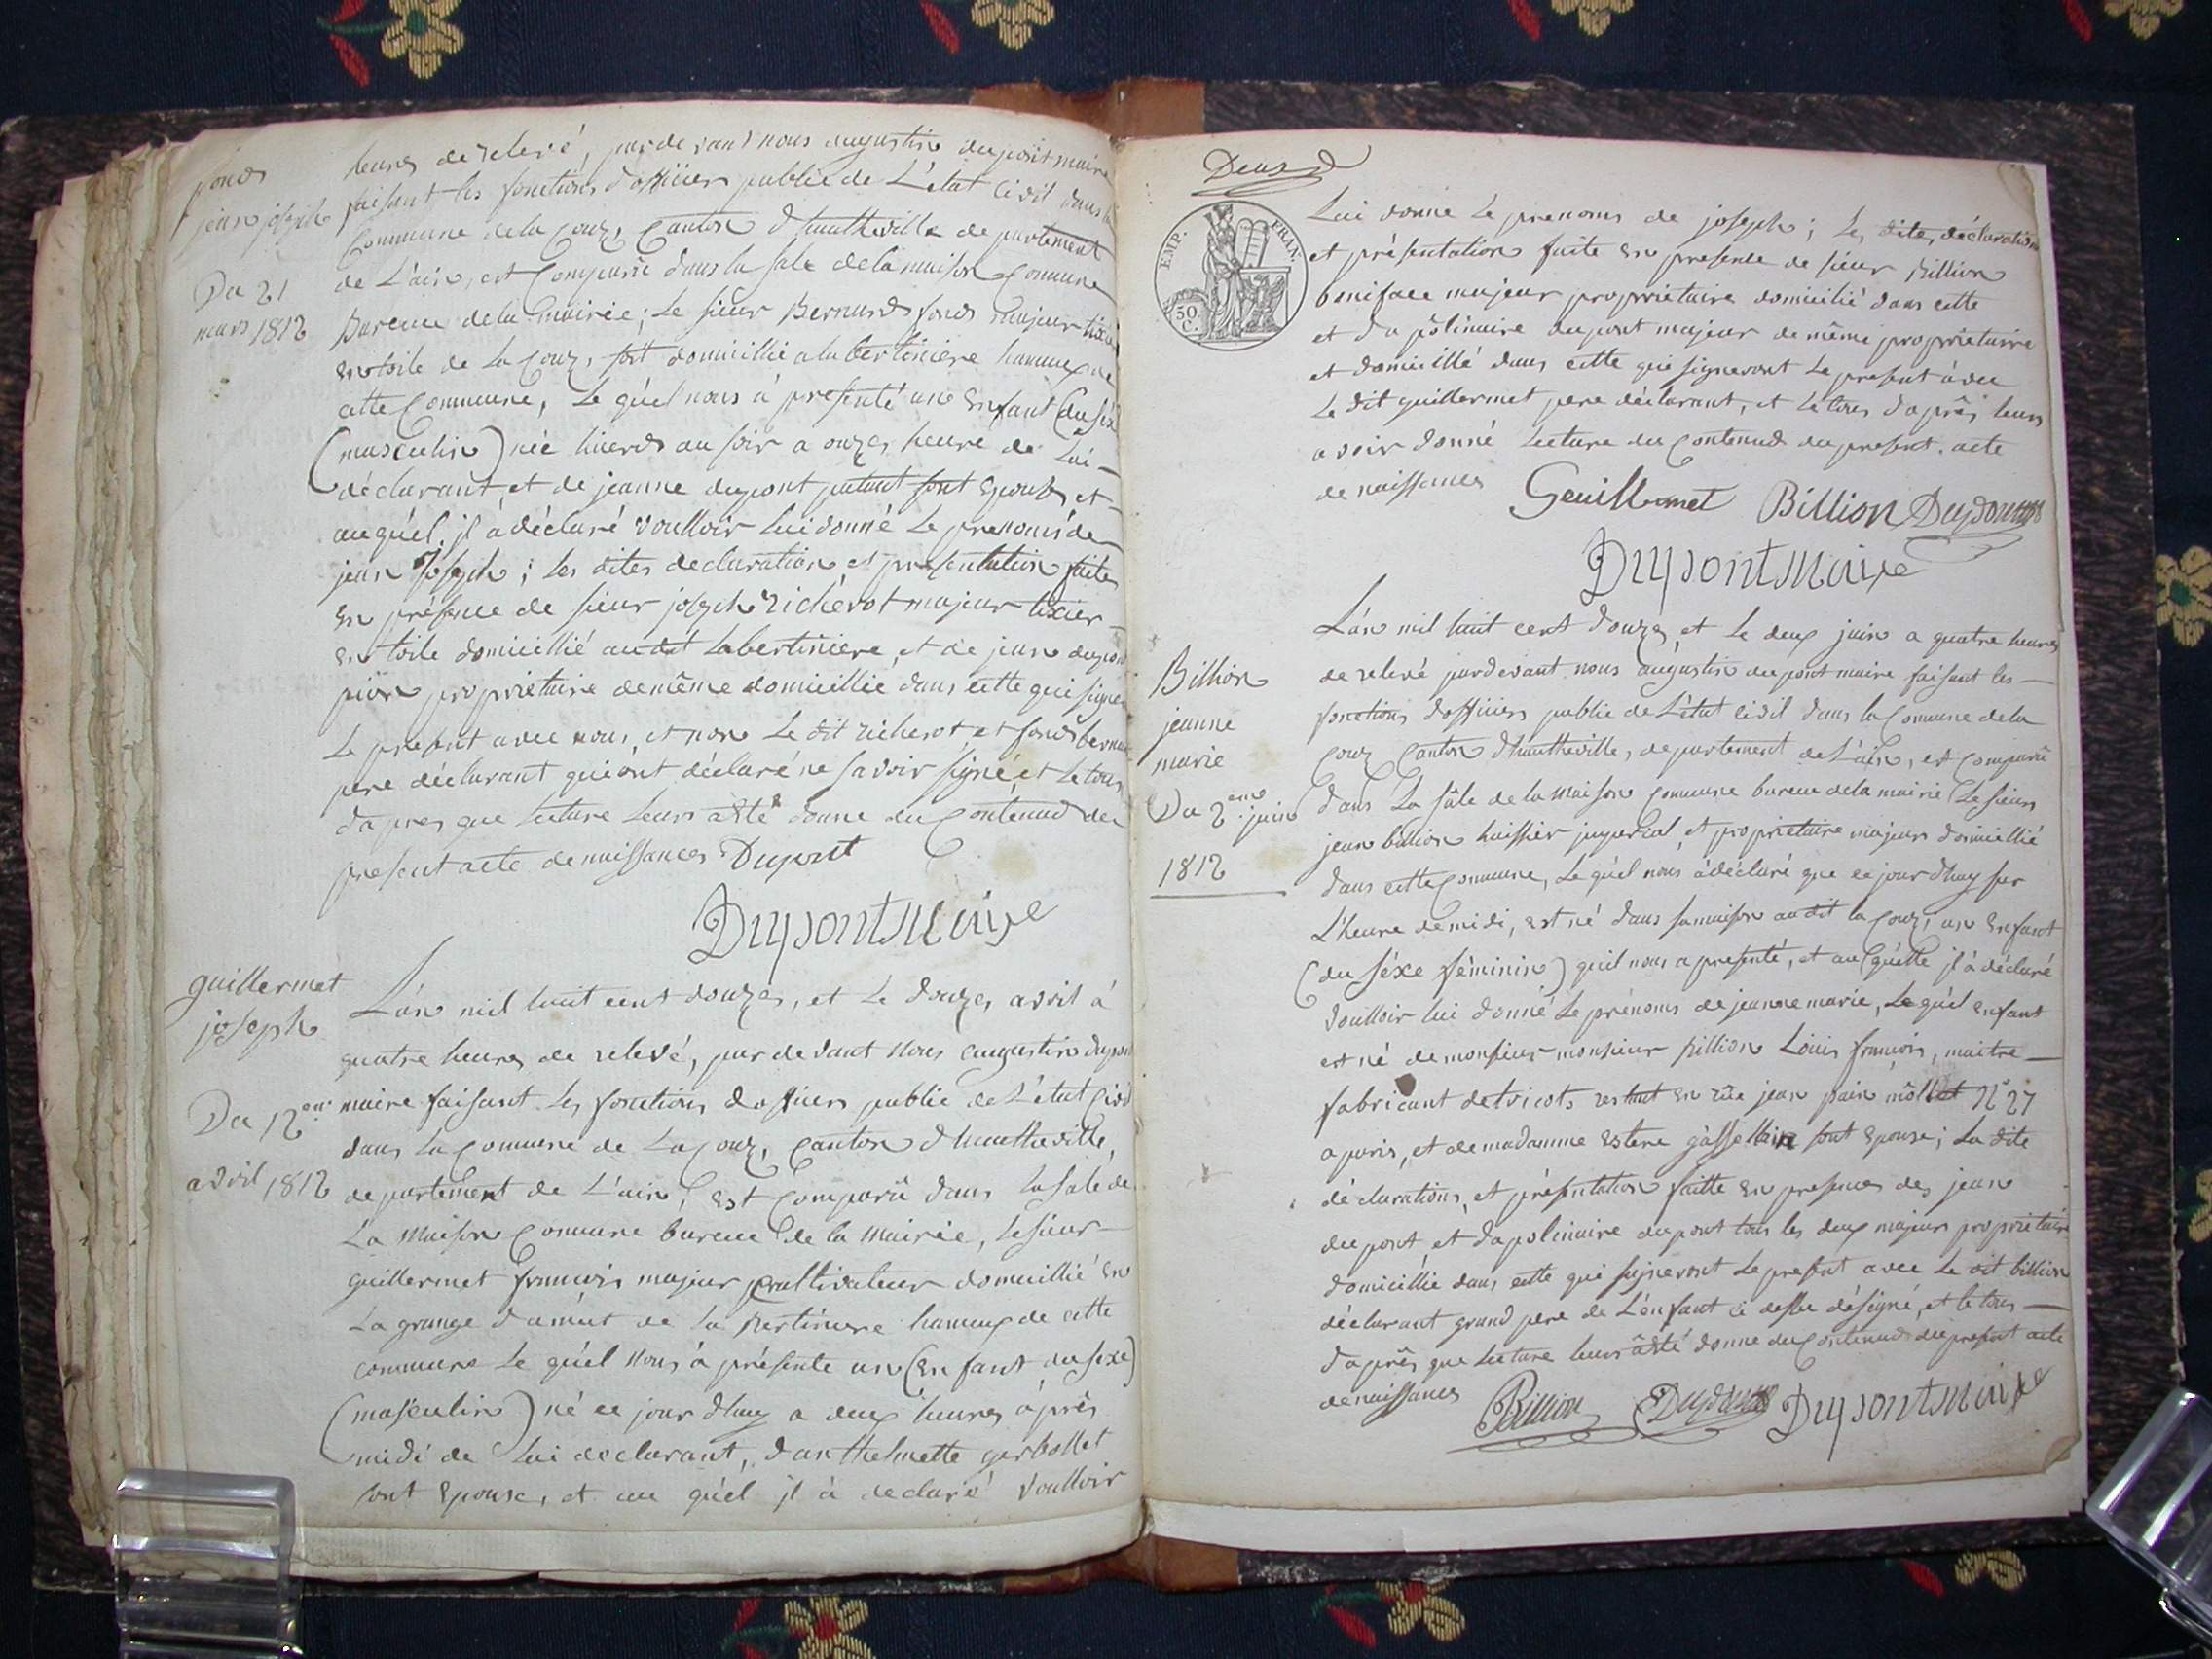 fond
jean joseph
Du 21
mars 1812
heures de relevé, pardevant nous augustin dupont maire
faisant les fonctions d'officier public de L'état Civil dans la
Commune de la Couz, Canton d'hautheville departement
de L'ain, est Comparû dans la Sale de la maison Comune
Bureau de la mairie; Le sieur Bernard fond majeur tixier
en toile de la Couz, domicillié a la bertiniere hameaux de
cette Commune, Le quél nous à présenté une Enfant (du séx
(masculin) née hierd au soir a onzes heure de Lui
déclarant, et de jeanne dupont son Epouse, et
au quél, jl à déclaré voulloir lui donné Le prenoms de
jean Joseph; les dites declaration et presentation faites
En présence de sieur joseph richerot majeur tixier
en toile domicillié audit Labertiniere, et de jean dupont
propriétaire de même domicillié dans cette qui signe
Le present avec nous, et non Le dit richerot et fond bernard
pere déclarant qui ont déclaré ne savoir signé, et Le tous
d'apres que lecture leurs a été donne du Contenud du
present acte de naissances Dupont
Dupont Maire
guillermet
joseph
Du 12eme
avril 1812
L'an mil huit cent douzes, et Le douzes avril à
quatre heures de relevé, par devant Nous augustin dupont
maire faisant les fonctions d'officiers public de L'état Civil
dans La Comune de La Couz, Canton d'hautheville,
departement de L'ain, est Comparû dans la sale de
La Maison Comune bureau de la Mairie, Le sieur
guillermet francois majeur cultivateur domicillié en
La grange d'amut de la Bertiniere hameaux de cette
commune Le quél Nous à présente un (Enfant du sexe)
(masculin) né ce jour d'huy a deux heures àprês
midi de Lui declarant, d'anthelmette gerbollet
sont Epouse, et au quél jl à declaré voulloir
Deux
EMP. FRAN.
50 C.
Lui donné Le prenoms de joseph; Les dites déclaration
et présentation faite en presence de sieur Billion
boniface majeur propriétaire domicilié dans cette
et d'apôlinaire dupont majeur de même propriétaire
et domicillé dans cette qui signeront Le present àvec
Le dit guillermet pere déclarant, et Le tous d'aprês leurs
avoir donné Lecture du Contenud du present acte
de naissances Geuillermet Billion Dupont
Dupont Maire
Billion
jeanne
marie
Du 2eme juin
1812
L'an mil huit cent douzes, et Le deux juin a quatre heures
de relevé pardevant nous augustin dupont maire faisant les
fonctions d'officiers public de L'état Civil dans la Comune de la
Couz Canton d'hautheville, departement de L'ain, est Comparû
dans La sâle de la Maison Commune bureau de la mairie Le sieur
jean billion huissier imperial, et proprietaire majeur domicillié
dans cette Commune, Le quél nous à déclaré que ce jour d'huy sur
L'heure de midi, est né dans sa maison audit la Couz, un Enfant
(du séxe féminin) qu'il nous a presenté, et au quélle jl à déclaré
voulloir lui donné Le prénoms de jeanne marie, Le quél enfant
est né de monsieur monsieur Billion Louis francois, maitre
fabricant de tricots restant en rûe jean pain môllet N° 27
a paris, et de madamme estere gâssellain sont Epouse; La dite
déclarations, et présentation faitte en presences des jean
dupont, et d'apolinaire dupont tous les deux majeurs propriétaire
domicillie dans cette qui signeront Le present avec Le dit billion
déclarant grand pere de L'enfant ci dessu désigné, et le tous
d'aprês que Lecture leurs à été donne du Contenud du present acte
de naissances Billion Dupont Dupont Maire